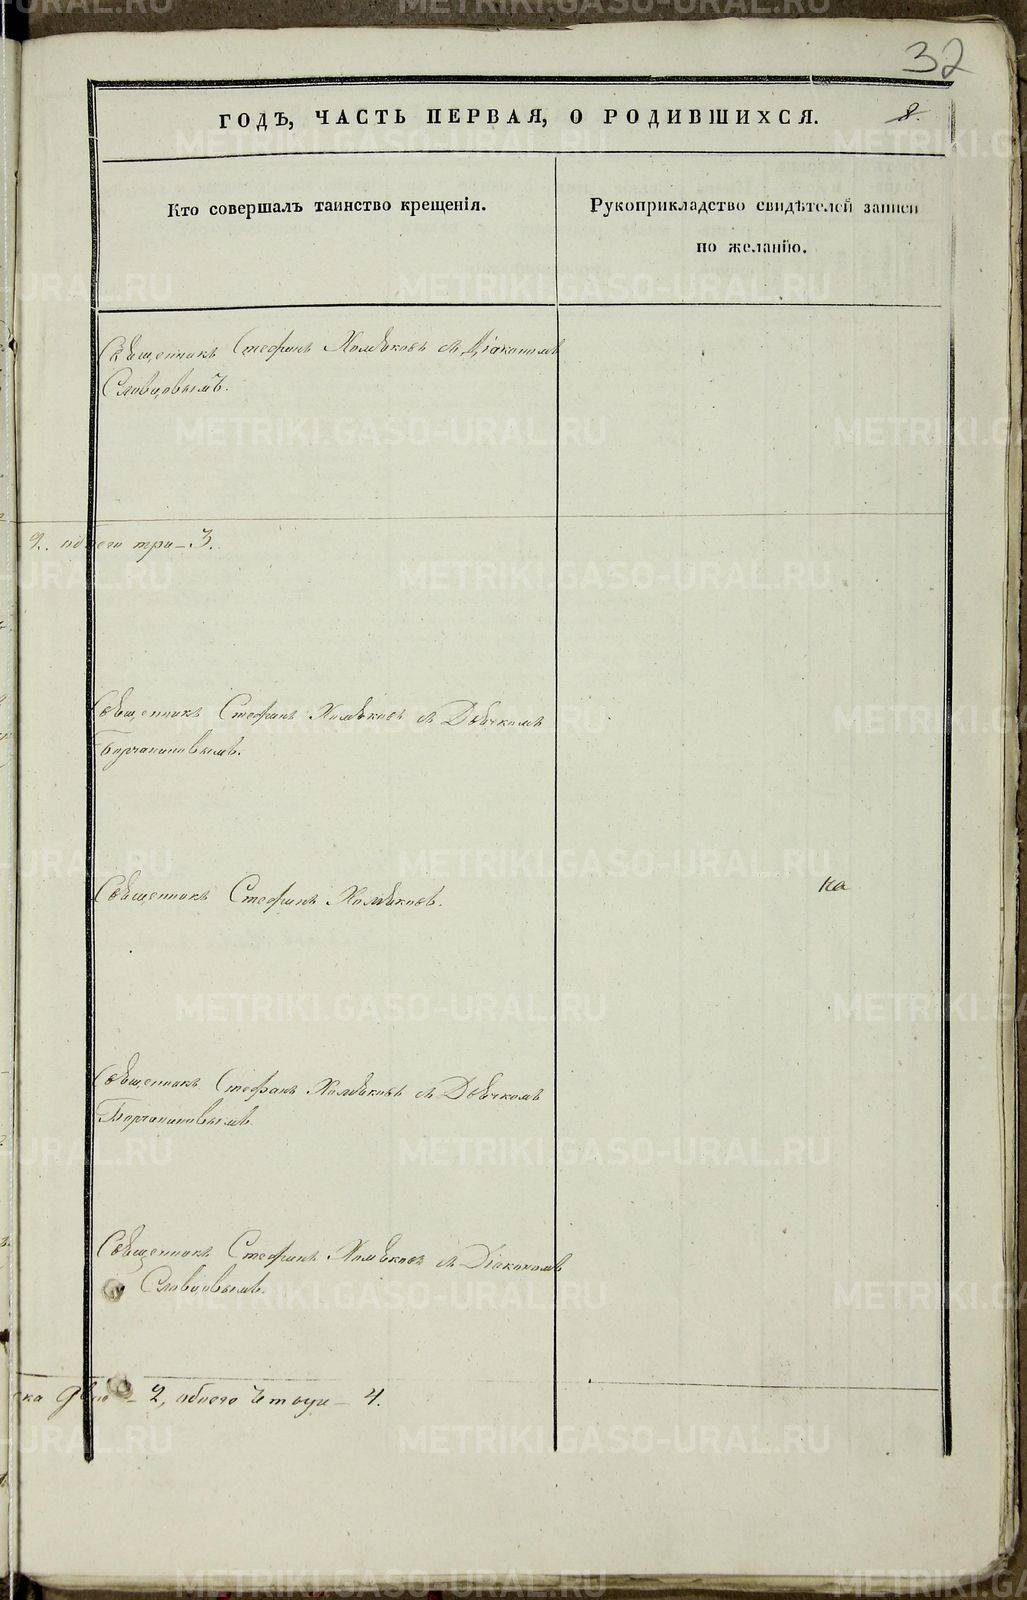 32
ГОДЪ, ЧАСТЬ ПЕРВАЯ, О РОДИВШИХСЯ.
8.
Кто совершалъ таинство крещенія.
Рукоприкладство свидѣтелей записи
по желанію.
Священникъ Стефанъ Хомяковъ съ Діакономъ
Словцовымъ.
2. обоего три – 3.
Священникъ Стефанъ Хомяковъ съ Дьячкомъ
Борчаниновымъ.
Священникъ Стефанъ Хомяковъ.
ка
Священникъ Стефанъ Хомяковъ съ Дьячкомъ
Борчаниновымъ
Священникъ Стефанъ Хомяковъ съ Діакономъ
Словцовымъ.
ска двое – 2, обоего четыре – 4.
METRIKI.GASO-URAL.RU